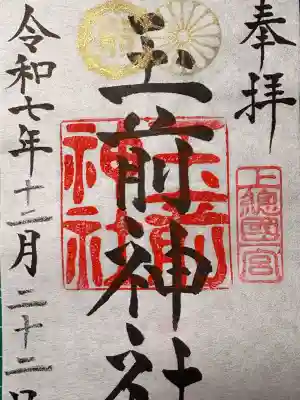 奉拝
上總國一宮
玉前神社
玉前神社
令和七年十二月二十二日